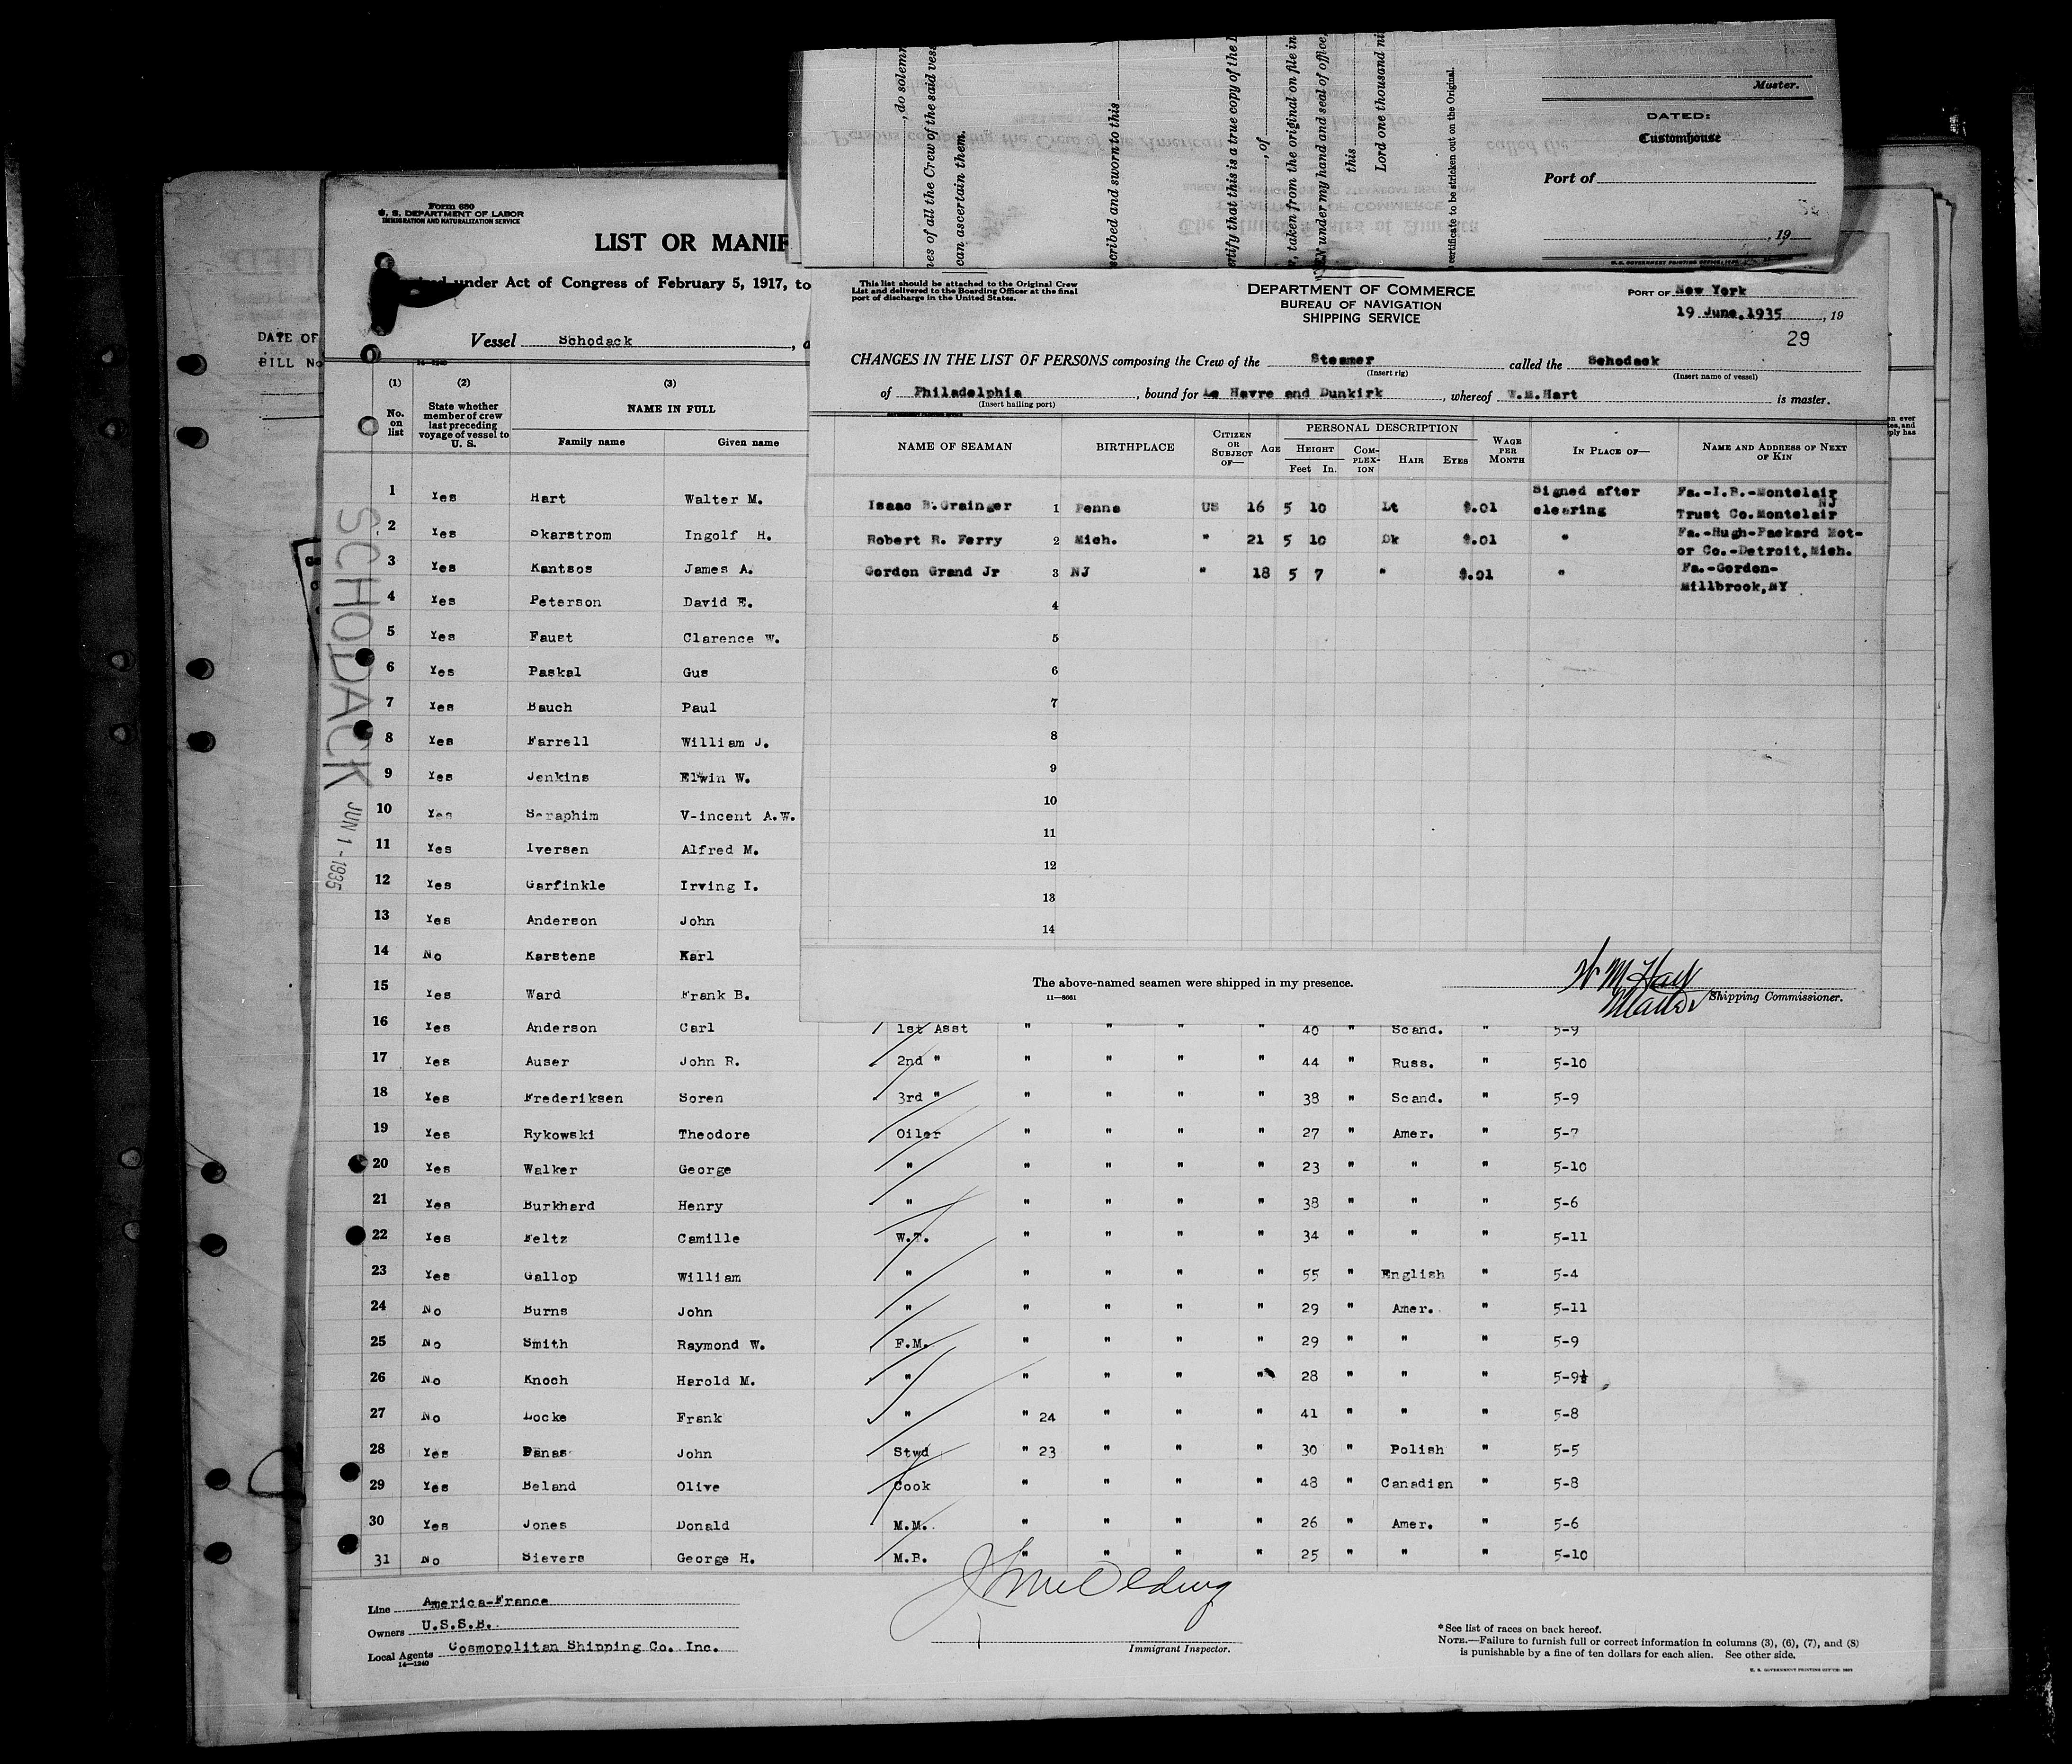 Master.
DATED:
Customhouse
Port of
, 19
, do solemn
nes of all the Crew of the said vess
can ascertain them.
scribed and sworn to this
rtify that this is a true copy of the
, of
, taken from the original on file in
under my hand and seal of office,
this
Lord one thousand ni
certificate to be stricken out on the Original.
Form 680
U. S. DEPARTMENT OF LABOR
IMMIGRATION AND NATURALIZATION SERVICE
LIST OR MANIF
under Act of Congress of February 5, 1917, to
Vessel Schodack
DATE OF
BILL No
SCHODACK JUN 1 - 1935
This list should be attached to the Original Crew
List and delivered to the Boarding Officer at the final
port of discharge in the United States.
DEPARTMENT OF COMMERCE
BUREAU OF NAVIGATION
SHIPPING SERVICE
PORT OF New York
19 June, 1935, 19
29
CHANGES IN THE LIST OF PERSONS composing the Crew of the Steamer called the Schodack
(Insert rig) (Insert name of vessel)
of Philadelphia, bound for Le Havre and Dunkirk, whereof W.M.Hart is master.
(Insert hailing port)
NAME OF SEAMAN BIRTHPLACE CITIZEN OR SUBJECT OF— AGE PERSONAL DESCRIPTION HEIGHT Feet In. COMPLEXION HAIR EYES WAGE PER MONTH IN PLACE OF— NAME AND ADDRESS OF NEXT OF KIN
Isaac B.Grainger 1 Penna US 16 5 10 Lt $.01 Signed after clearing Fa.-I.B.-Montclair NJ Trust Co.Montclair
Robert R. Ferry 2 Mich. " 21 5 10 Dk $.01 " Fa.-Hugh-Packard Motor Co.-Detroit,Mich.
Gordon Grand Jr 3 NJ " 18 5 7 " $.01 " Fa.-Gordon-Millbrook,NY
4
5
6
7
8
9
10
11
12
13
14
The above-named seamen were shipped in my presence.
11—8661
W M Hart
Master
Shipping Commissioner.
(1) (2) (3)
No. on list State whether member of crew last preceding voyage of vessel to U. S. NAME IN FULL
Family name Given name
1 Yes Hart Walter M.
2 Yes Skarstrom Ingolf H.
3 Yes Kantsos James A.
4 Yes Peterson David E.
5 Yes Faust Clarence W.
6 Yes Paskal Gus
7 Yes Bauch Paul
8 Yes Farrell William J.
9 Yes Jenkins Elwin W.
10 Yes Seraphim V-incent A.W.
11 Yes Iversen Alfred M.
12 Yes Garfinkle Irving I.
13 Yes Anderson John
14 No Karstens Karl
15 Yes Ward Frank B.
16 Yes Anderson Carl 1st Asst " " " " 40 " Scand. " 5-9
17 Yes Auser John R. 2nd " " " " " 44 " Russ. " 5-10
18 Yes Frederiksen Soren 3rd " " " " " 38 " Scand. " 5-9
19 Yes Rykowski Theodore Oiler " " " " 27 " Amer. " 5-7
20 Yes Walker George " " " " " 23 " " " 5-10
21 Yes Burkherd Henry " " " " " 38 " " " 5-6
22 Yes Feltz Camille W.T. " " " " 34 " " " 5-11
23 Yes Gallop William " " " " " 55 " English " 5-4
24 No Burns John " " " " " 29 " Amer. " 5-11
25 No Smith Raymond W. F.M. " " " " 29 " " " 5-9
26 No Knoch Harold M. " " " " " 28 " " " 5-9½
27 No Locke Frank " " 24 " " " 41 " " " 5-8
28 Yes Panas John Stwd " 23 " " " 30 " Polish " 5-5
29 Yes Beland Olive Cook " " " " 48 " Canadian " 5-8
30 Yes Jones Donald M.M. " " " " 26 " Amer. " 5-6
31 No Sievers George H. M.B. " " " " 25 " " " 5-10
Line America-France
Owners U.S.S.B.
Local Agents Cosmopolitan Shipping Co. Inc.
14—1240
Immigrant Inspector.
*See list of races on back hereof.
NOTE.—Failure to furnish full or correct information in columns (3), (6), (7), and (8)
is punishable by a fine of ten dollars for each alien. See other side.